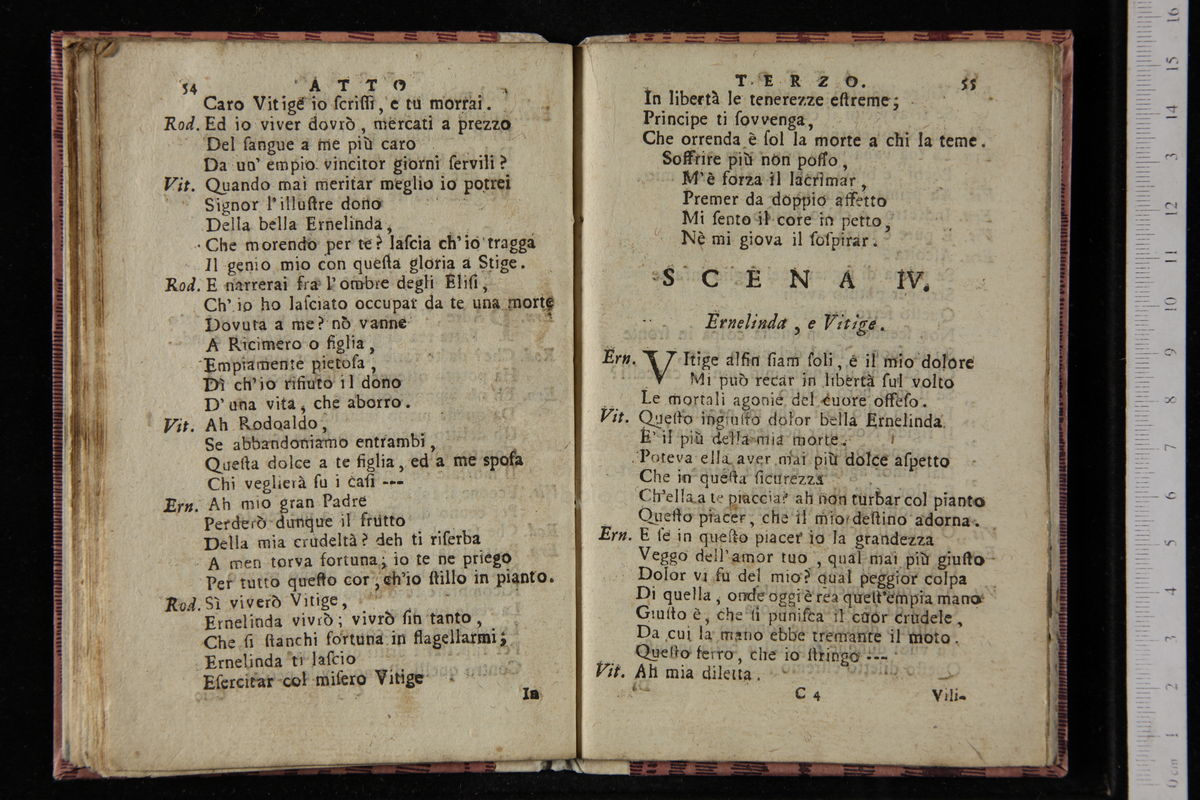 54 ATTO
Caro Vitige io ſcriſſi, e tu morrai.
Rod. Ed io viver dovrò, mercati a prezzo
Del ſangue a me più caro
Da un' empio vincitor giorni ſervili?
Vit. Quando mai meritar meglio io potrei
Signor l'illuſtre dono
Della bella Ernelinda,
Che morendo per te? laſcia ch'io tragga
Il genio mio con queſta gloria a Stige.
Rod. E narrerai fra l'ombre degli Eliſi,
Ch' io ho laſciato occupar da te una morte
Dovuta a me? nò vanne
A Ricimero o figlia,
Empiamente pietoſa,
Dì ch'io rifiuto il dono
D'una vita, che aborro.
Vit. Ah Rodoaldo,
Se abbandoniamo entrambi,
Queſta dolce a te figlia, ed a me ſpoſa
Chi veglierà ſu i caſi ---
Ern. Ah mio gran Padre
Perderò dunque il frutto
Della mia crudeltà? deh ti riſerba
A men torva fortuna; io te ne priego
Per tutto queſto cor, ch'io ſtillo in pianto.
Rod. Sì viverò Vitige,
Ernelinda vivrò; vivrò ſin tanto,
Che ſi ſtanchi fortuna in flagellarmi;
Ernelinda ti laſcio
Eſercitar col miſero Vitige
In
TERZO. 55
In libertà le tenerezze eſtreme;
Principe ti ſovvenga,
Che orrenda è ſol la morte a chi la teme.
Soffrire più non poſſo,
M'è forza il lacrimar,
Premer da doppio affetto
Mi ſento il core in petto,
Nè mi giova il ſoſpirar.
SCENA IV.
Ernelinda, e Vitige.
Ern. VItige alfin ſiam ſoli, e il mio dolore
Mi può recar in libertà ſul volto
Le mortali agonie del cuore offeſo.
Vit. Queſto ingiuſto dolor bella Ernelinda
E' il più della mia morte.
Poteva ella aver mai più dolce aſpetto
Che in queſta ſicurezza
Ch'ella a te piaccia? ah non turbar col pianto
Queſto piacer, che il mio deſtino adorna.
Ern. E ſe in queſto piacer io la grandezza
Veggo dell'amor tuo, qual mai più giuſto
Dolor vi fu del mio? qual peggior colpa
Di quella, onde oggi è rea queſt'empia mano
Giuſto è, che ſi puniſca il cuor crudele,
Da cui la mano ebbe tremante il moto.
Queſto ferro, che io ſtringo ---
Vit. Ah mia diletta.
C 4 Vili-
0 cm 1 2 3 4 5 6 7 8 9 10 11 12 13 14 15 16